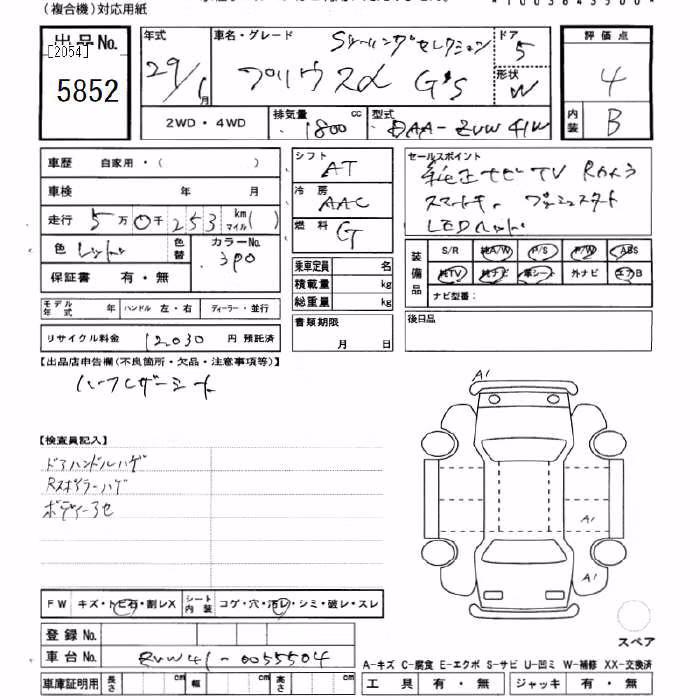 (複合機)対応用紙
出品No.
[2054]
5852
年式
29/1月
車名・グレード
S ツーリングセレクション
プリウスα G's
ドア
5
形状
W
2WD・4WD
排気量
1800 cc
型式
DAA-ZVW41W
評価点
4
内装
B
車歴 自家用・( )
車検 年 月
走行 5万0千253 km マイル( )
色
色替
カラーNo.
3P0
保証書 有・無
モデル年式 年 ハンドル 左・右 ディーラー・並行
リサイクル料金 12030 円 預託済
シフト
AT
冷房
AAC
燃料
G
乗車定員 名
積載量 kg
総重量 kg
書類期限
月 日
セールスポイント
純正ナビ TV Rカメラ
スマートキー プッシュスタート
LEDヘッド
装備品
S/R 純A/W P/S P/W ABS
純TV 純ナビ 革シート 外ナビ エアB
ナビ型番:
後日品
【出品店申告欄(不良箇所・欠品・注意事項等)】
ハーフレザーシート
【検査員記入】
ドアハンドルハゲ
Rスポイラーハゲ
ボディー3セ
A1
A1
A1
FW キズ・トビ石・割レX
シート内装 コゲ・穴・汚レ・シミ・破レ・スレ
登録No.
車台No. ZVW41-0055504
車庫証明用 長さ cm 幅 cm 高さ cm
スペア
A-キズ C-腐食 E-エクボ S-サビ U-凹ミ W-補修 XX-交換済
工具 有・無 ジャッキ 有・無